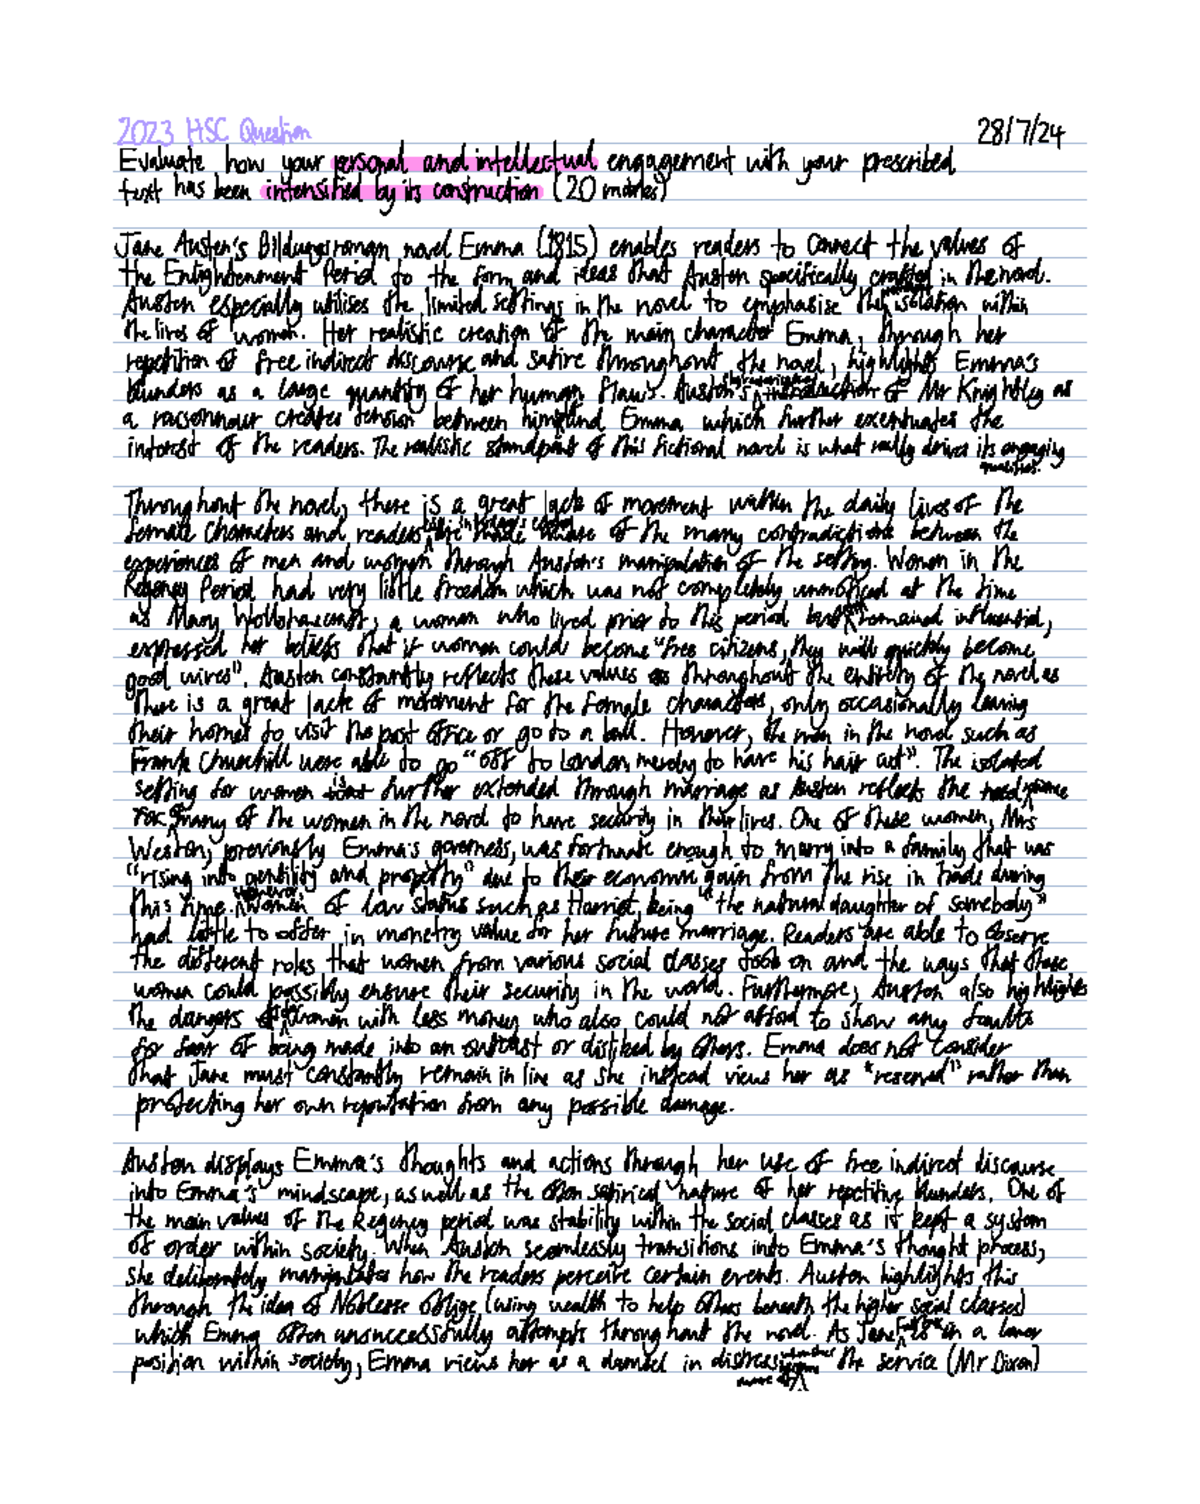 2023 HSC Question
28/7/24
Evaluate how your personal and intellectual engagement with your prescribed
text has been intensified by its construction (20 marks)
Jane Austen's Bildungsroman novel Emma (1815) enables readers to connect the values of
the Enlightenment Period to the form and ideas that Austen specifically crafted in the novel.
Austen especially utilises the limited settings in the novel to emphasise the isolation within
the lives of women. Her realistic creation of the main character Emma, through her
repetition of free indirect discourse and satire throughout the novel, highlights Emma's
blunders as a large quantity of her human flaws. Austen's characterisation of Mr Knightley as
a raisonneur creates tension between him and Emma which further excentuates the
interest of the readers. The realistic standpoint of this fictional novel is what really drives its engaging
qualities.
Throughout the novel, there is a great lack of movement within the daily lives of the
female characters and readers in today's context are made aware of the many contradictions between the
experiences of men and women through Austen's manipulation of the setting. Women in the
Regency Period had very little freedom which was not completely unnoticed at the time
as Mary Wollstonecraft, a woman who lived prior to this period but remained influential,
expressed her beliefs that if women could become "free citizens, they will quickly become
good wives". Austen constantly reflects these values throughout the entirety of the novel as
there is a great lack of movement for the female characters, only occasionally leaving
their homes to visit the post office or go to a ball. However, the men in the novel such as
Frank Churchill were able to go "off to London, merely to have his hair cut". The isolated
setting for women is further extended through marriage as Austen reflects the
for many of the women in the novel to have security in their lives. One of these women, Mrs
Weston, previously Emma's governess, was fortunate enough to marry into a family that was
"rising into gentility and property" due to their economic gain from the rise in trade during
this time. However, women of low status such as Harriet, being "the natural daughter of somebody"
had little to offer in monetry value for her future marriage. Readers are able to observe
the different roles that women from various social classes took on and the ways that these
women could possibly ensure their security in the world. Furthermore, Austen also highlights
the dangers women with less money who also could not afford to show any faults
for fear of being made into an outcast or disliked by others. Emma does not consider
that Jane must constantly remain in line as she instead views her as "reserved" rather than
protecting her own reputation from any possible damage.
Austen displays Emma's thoughts and actions through her use of free indirect discourse
into Emma's mindscape, as well as the often satirical nature of her repetitive blunders. One of
the main values of the Regency period was stability within the social classes as it kept a system
of order within society. When Austen seamlessly transitions into Emma's thought process,
she deliberately manipulates how the readers perceive certain events. Austen highlights this
through the idea of Noblesse Oblige (using wealth to help others beneath the higher social classes)
which Emma often unsuccessfully attempts throughout the novel. As Jane Fairfax is in a lower
position within society, Emma views her as a damsel in distress the service (Mr Dixon)